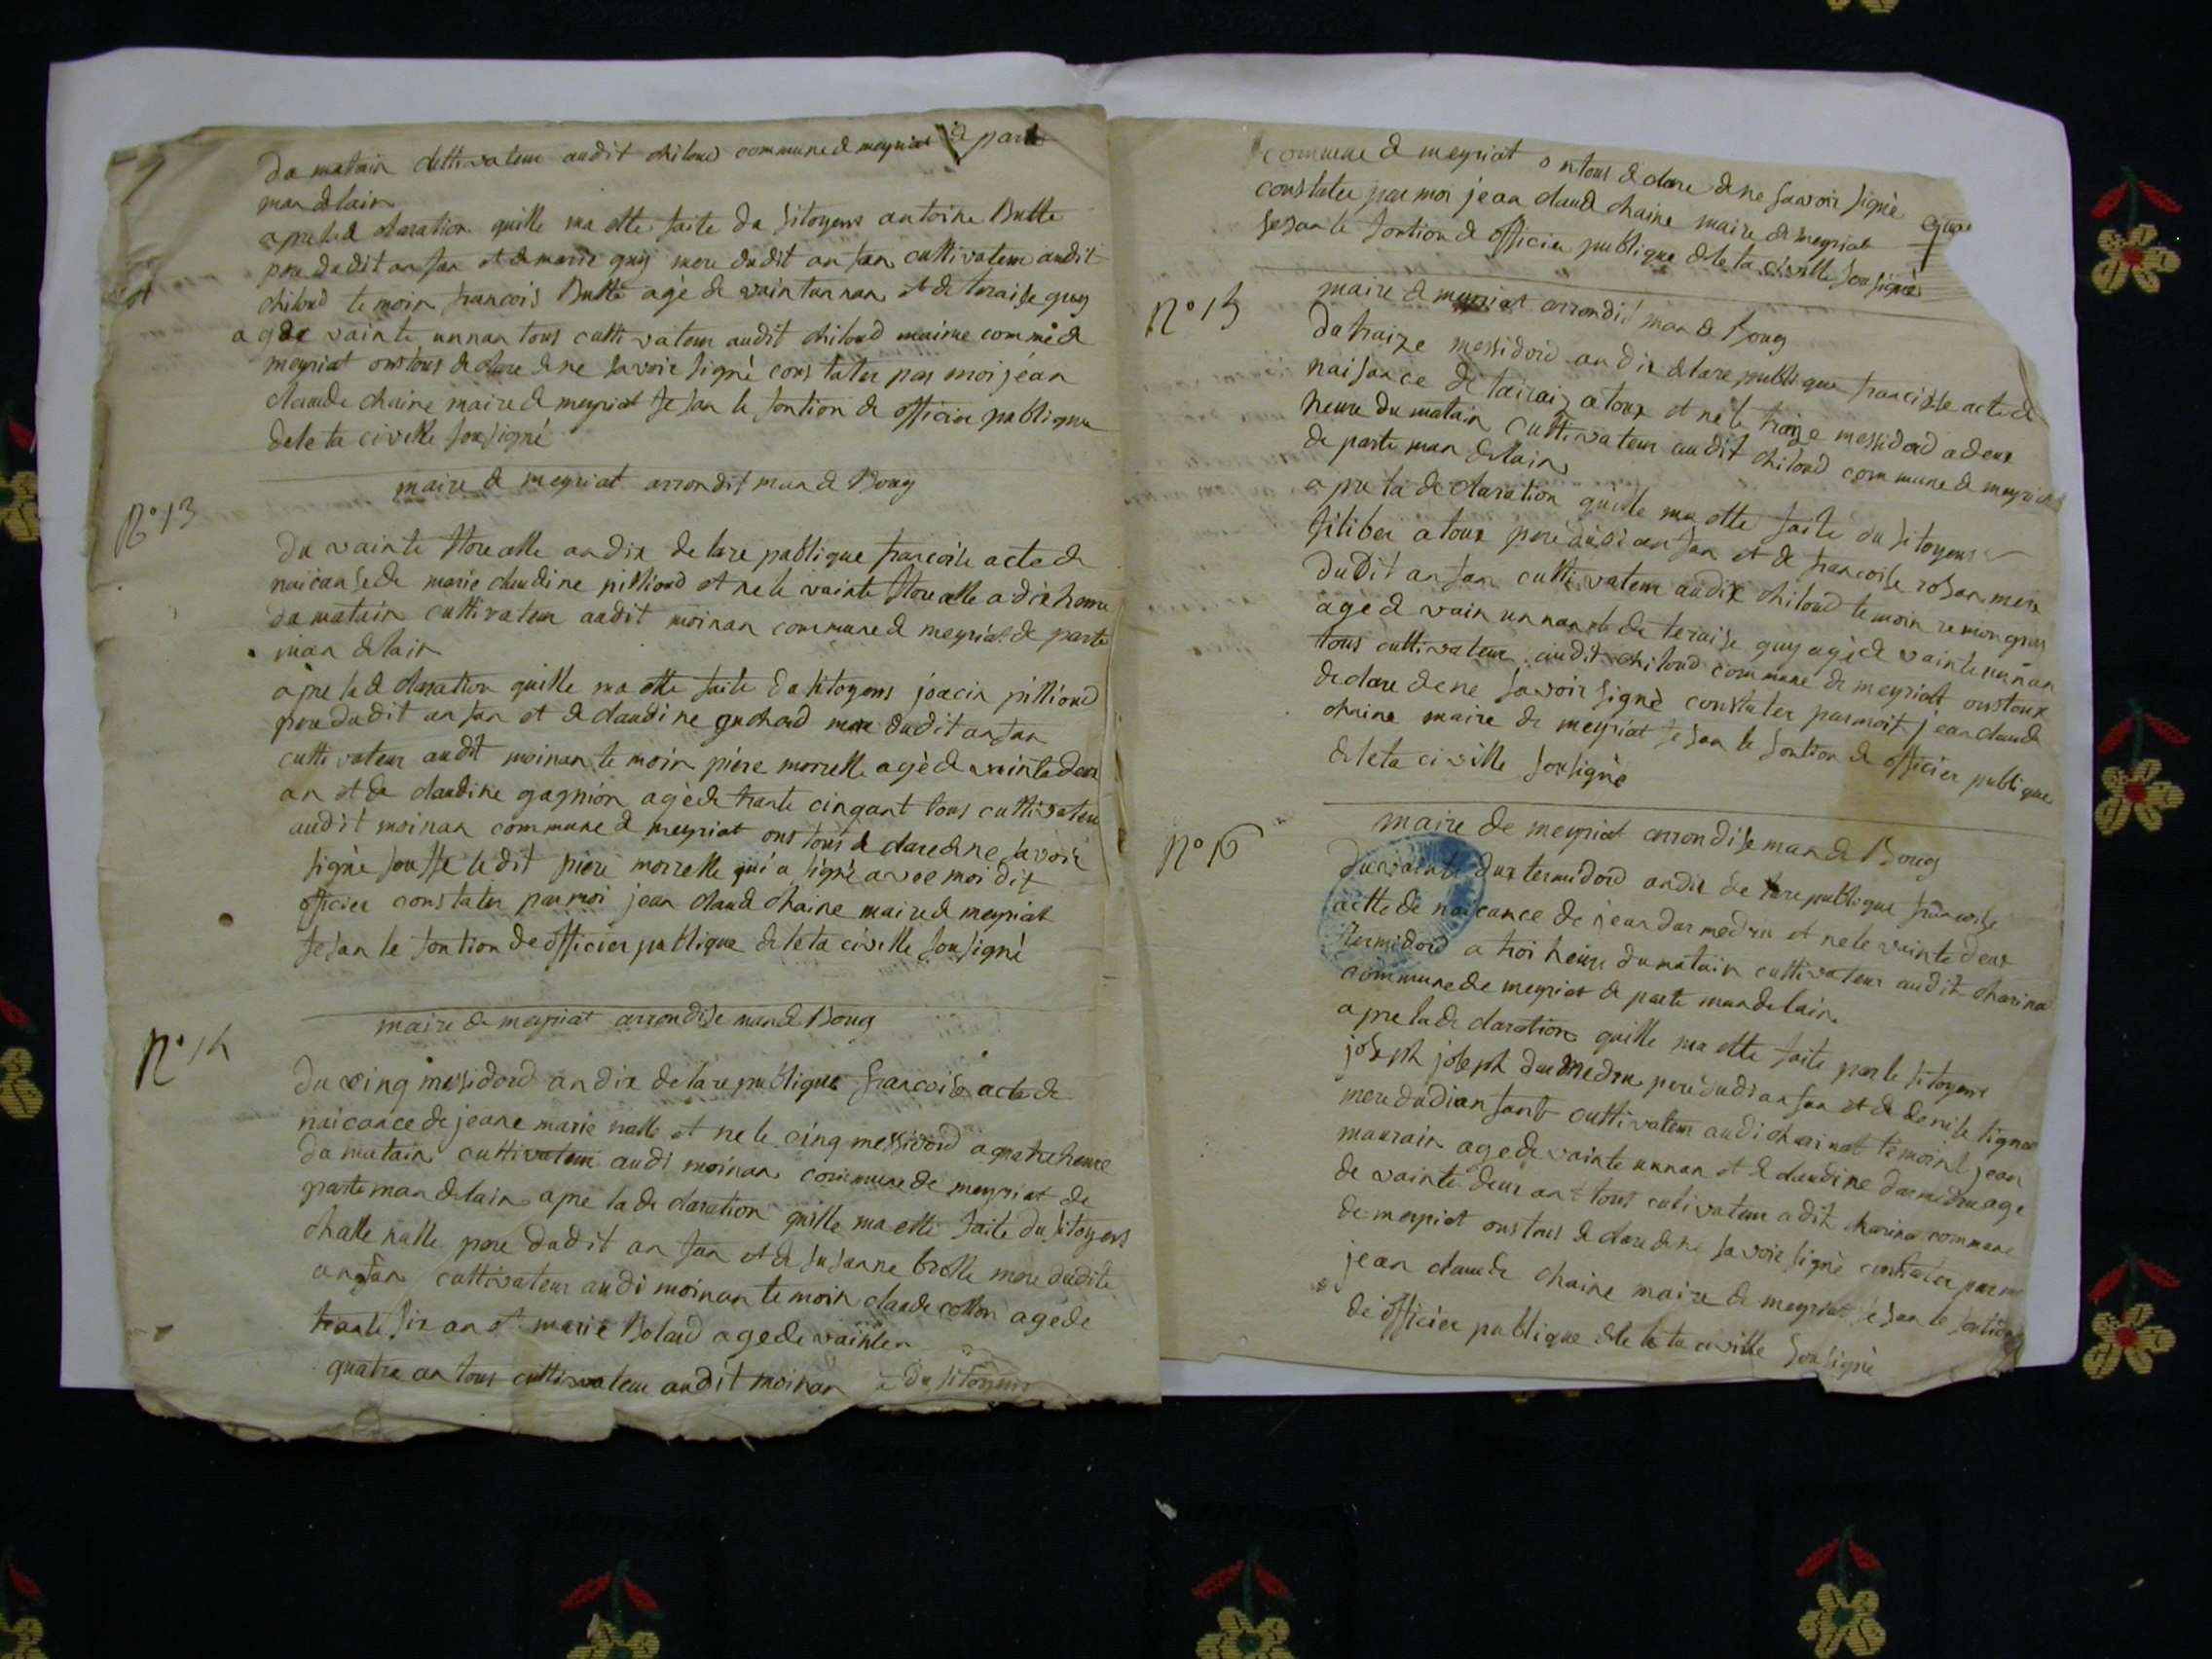 du matain cultivateur audit chiloud commune d meyriat d parte
man delain
apre led claration quille ma ette faite du sitoyens antoine Butte
pere dudit anfan et d marie guy mere dudit anfan cultivateur audit
chiloud temoin francois Butte agé de vaintunnan et de teraise guy
agde vainte unnan tous cultivateur audit chiloud maime comme d
meyriat ons tous d clare d ne savoir signé constater par moi jean
claude chaine maire d meyriat fesan le fontion de officier publique
deleta civille sousigné
maire d meyriat arrondisman d Bourg
N° 13
du vainte florealle an dix de lare publique francoise acte d
naicanse de marie claudine pillioud et ne le vainte florealle a dix heure
du matain cultivateur audit moinan commune d meyriat de parte
man delain
apre le d claration quille ma ette faite du sitoyens joacin pillioud
pere dudit anfan et d claudine guchard mere dudit anfan
cultivateur audit moinan temoin piere morrelle agè d vaintedeux
an et de claudine gagnion agè de trante cinqant tous cultivateur
audit moinan commune d meyriat ons tous d clare d ne savoir
signè souffe ledit piere morrelle qui a signè avec moi dit
officier constater par moi jean claud chaine maire d meyriat
fesan le fontion de officier publique deleta civille sousigné
maire de meyriat arrondise man d Bourg
N° 14
du cinq messidord an dix de lare publique francoise acte de
naicance de jeane marie nalle et ne le cinq messidord a quatre heure
du matain cultivateur audi moinan commune de meyriat de
parte man delain apre la de claration quille ma ette faite du sitoyens
challe nalle pere dudit anfan et d susanne brolle mere dudite
anfan cultivateur audi moinan temoin claude cotton agede
trante six an et marie Bolard agede vainte
quatre an tous cultivateur audit moinan du sitoyens
commune d meyriat ontous d clare d ne savoir signé
constater par moi jean claud chaine maire d meyriat
fesan le fontion d officier publique deleta civille sousigné
maire d meyriat arrondisman d Bourg
N° 15
du traize messidord an dix d lare publique francisse acte d
naisance de tairaiz atoux et ne le traize messidord a deux
heure du matain cultivateur audit chiloud commune d meyriat
de parte man delain
apre la de claration quille ma ette faite du sitoyens
filiber atoux pere dudi anfan et de francoise rosan mere
dudit anfan cultivateur audix chiloud temoin remon
age d vain unnan et de teraise guy agé d vainte unnan
tous cultivateur audit chiloud commune de meyriatt onstoux
declare dene savoir signè constater par moit jean claude
chaine maire de meyriat fesan le fontion d officier publique
deleta civille sousignè
maire de meyriat arrondise man d Bourg
N° 16
du vainte dux termidord an dix de lare publique francoise
actte de naicance de jean darmedru et ne le vainte deux
termidord a troi heure du matain cultivateur audit charina
commune de meyriat d parte man delain
apre la de claration quille ma ette faite par le sitoyens
joseph joseph darmedru pere dudi anfan et de denise
mere dudi anfant cultivateur audi charinat temoint jean
maurain agede vainte unnan et d claudine darmedru age
de vainte deux ant tous cultivateur a dit charina commune
de meyriat ons tous d clare dene savoir signè constater par
jean claude chaine maire d meyriat fesan le fontion
de officier publique dele ta civille sousignè